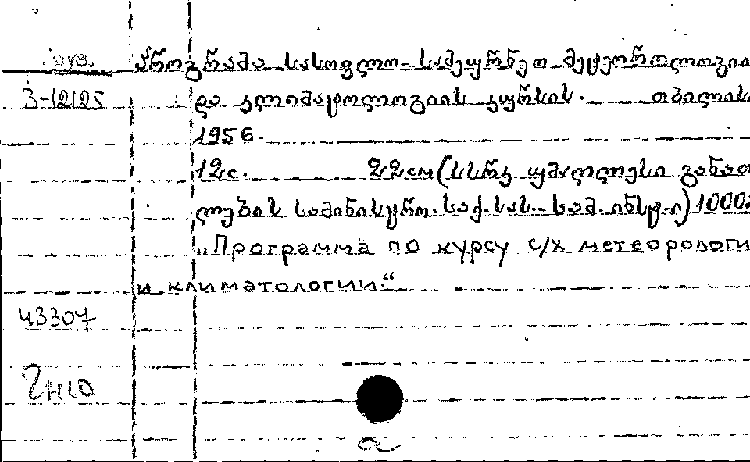 პროგრამა სასოფლო-სამეურნეო მეტეოროლოგიი
3-12125 და კლიმატოლოგიის კურსის. თბილის
1956.
12с. 22см (სსრკ უმაღლესი განათ
ლების სამინისტრო. საქ. სას.-სამ. ინსტ.ი) 1000
„Программа по курсу с/х метеорологи
и климатологии“
43307